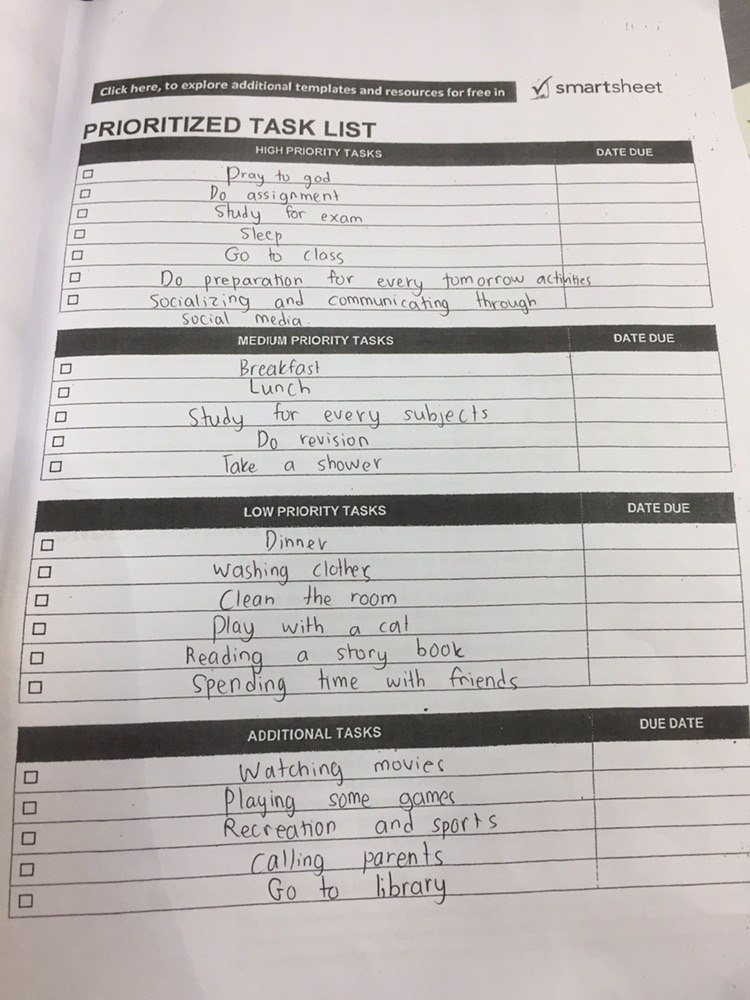 Click here, to explore additional templates and resources for free in
smartsheet
PRIORITIZED TASK LIST
HIGH PRIORITY TASKS DATE DUE
Pray to god
Do assignment
Study for exam
Sleep
Go to class
Do preparation for every tomorrow activities
Socializing and communicating through
social media.
MEDIUM PRIORITY TASKS DATE DUE
Breakfast
Lunch
Study for every subjects
Do revision
Take a shower
LOW PRIORITY TASKS DATE DUE
Dinner
Washing clothes
Clean the room
Play with a cat
Reading a story book
Spending time with friends
ADDITIONAL TASKS DUE DATE
Watching movies
Playing some games
Recreation and sports
Calling parents
Go to library